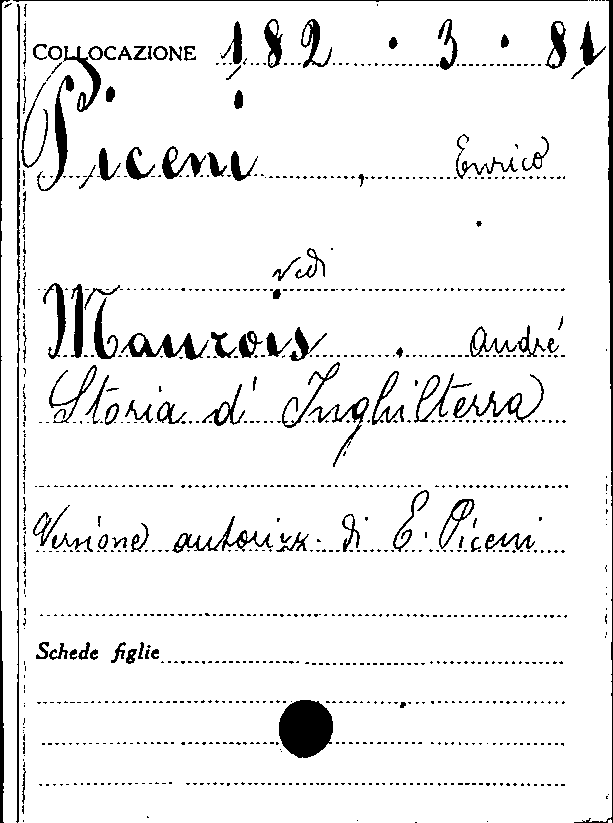 COLLOCAZIONE 182 . 3 . 81
Piceni, Enrico
vedi
Maurois. André
Storia d'Inghilterra
Versione autorizz. di E. Piceni
Schede figlie